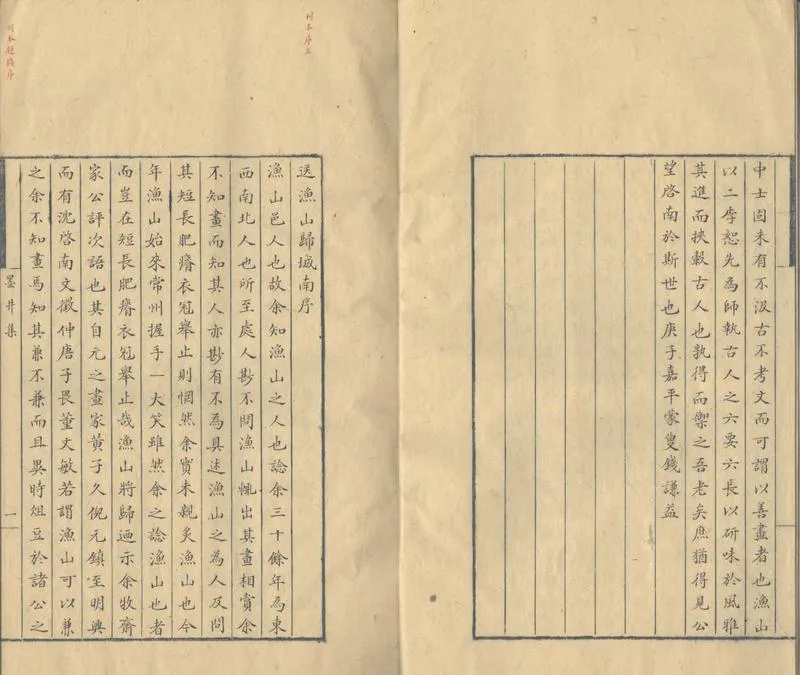 中士固未有不汲古不考文而可謂以善畫者也漁山
以二李恕先為師執古人之六要六長以研味於風雅
其進而挾轂古人也孰得而禦之吾老矣庶猶得見公
望啓南於斯世也庚子嘉平蒙叟錢謙益
刊本序五
送漁山歸城南序
漁山邑人也故余知漁山之人也諗余三十餘年為東
西南北人也所至處人尠不問漁山輒出其畫相賞余
不知畫而知其人亦尠有不為具述漁山之為人及問
其短長肥瘠衣冠舉止則惘然余實未親炙漁山也今
年漁山始來常州握手一大笑雖然余之諗漁山也者
而豈在短長肥瘠衣冠舉止哉漁山將歸迺示余牧齋
家公評次語也其自元之畫家黃子久倪元鎮至明興
而有沈啓南文徵仲唐子畏董文敏若謂漁山可以兼
之余不知畫焉知其兼不兼而且異時俎豆於諸公之
墨井集
一
刊本趙錢序